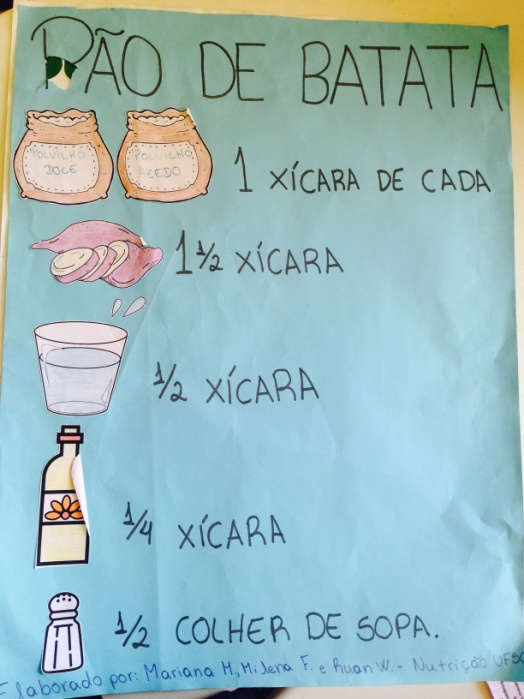 PÃO DE BATATA
POLVILHO DOCE
POLVILHO AZEDO
1 XÍCARA DE CADA
1 1/2 XÍCARA
1/2 XÍCARA
1/4 XÍCARA
1/2 COLHER DE SOPA.
Elaborado por: Mariana M, Milena F. e Ruan W. - Nutrição UFSC